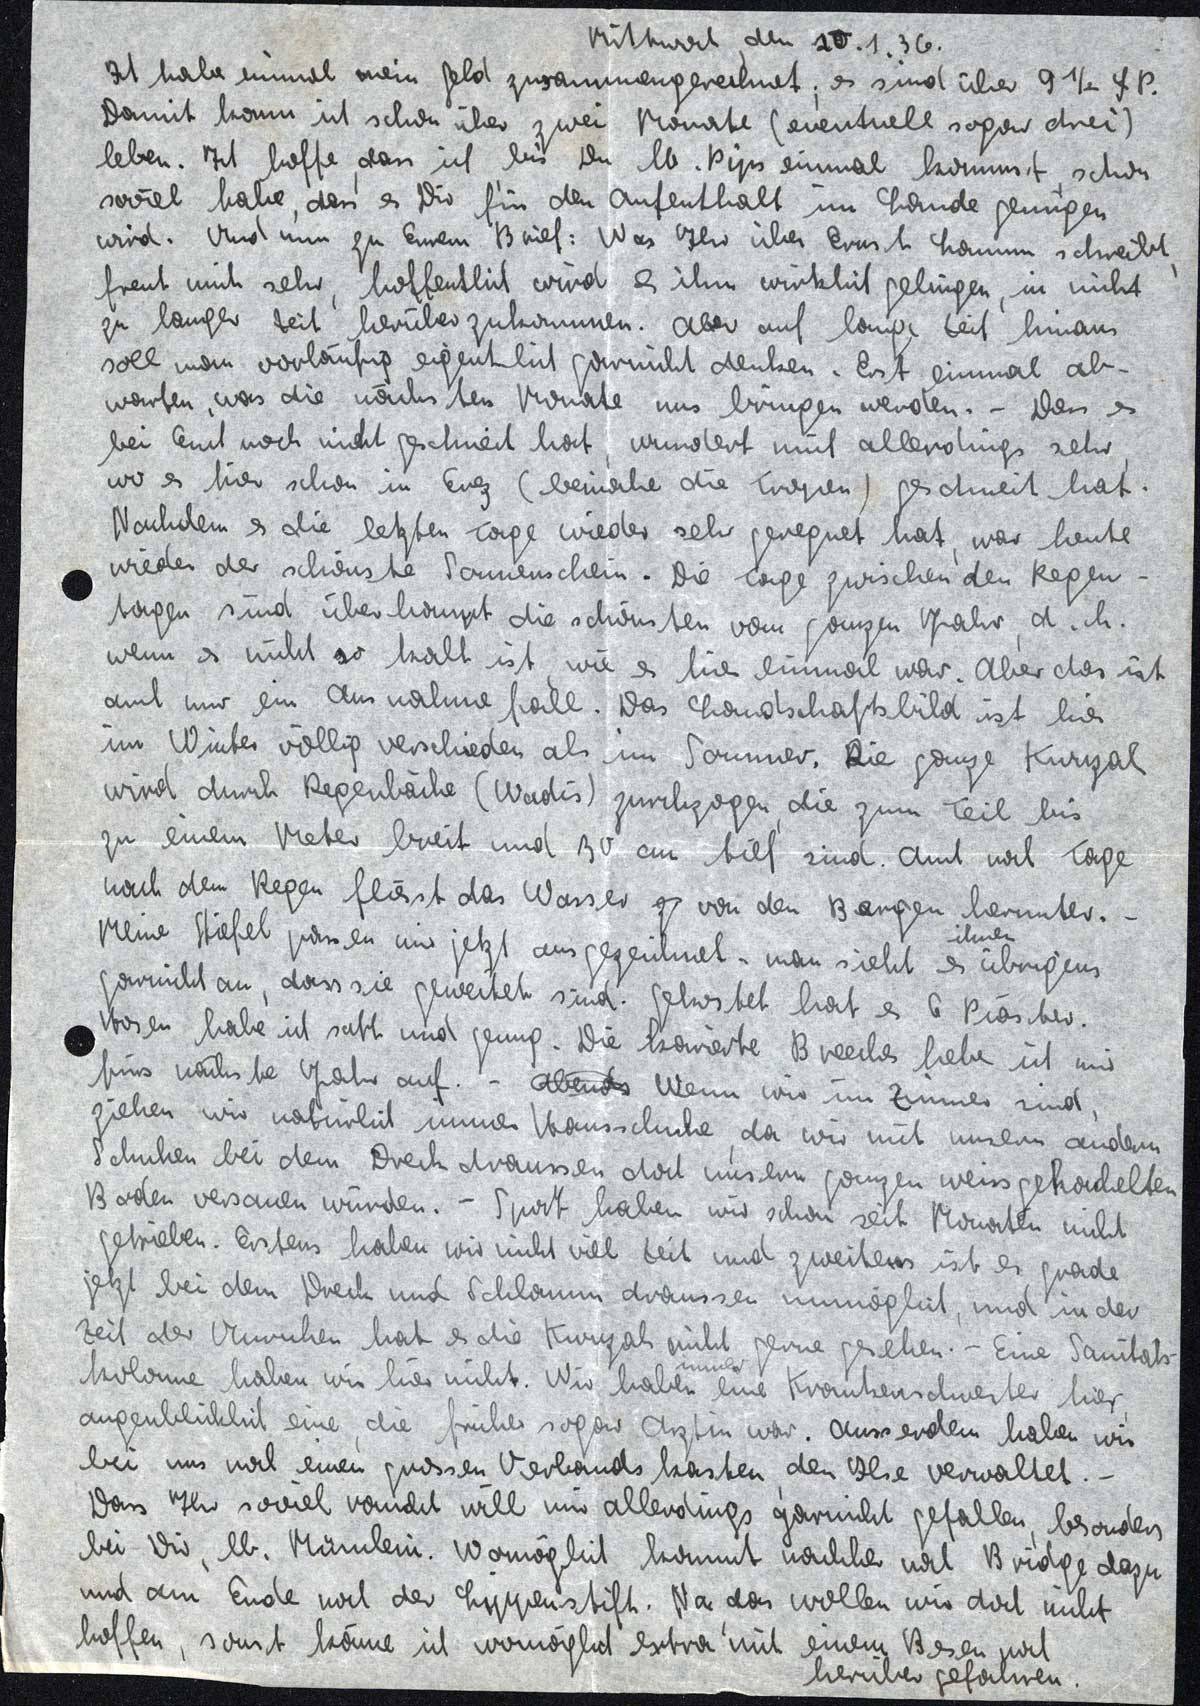 Mittwoch, den 20.1.36.
Ich habe einmal mein Geld zusammengerechnet, es sind über 9 1/2 £P.
Damit kann ich schon über zwei Monate (eventuell sogar drei)
leben. Ich hoffe, dass ich, bis Du lb. Pips einmal kommst, schon
soviel habe, dass es Dir für den Aufenthalt im Lande genügen
wird. Und nun zu Eurem Brief: Was Ihr über Ernst Hamm schreibt,
freut mich sehr, hoffentlich wird es ihm wirklich gelingen, in nicht
zu langer Zeit herüberzukommen. Aber auf lange Zeit hinaus
soll man vorläufig eigentlich garnicht denken. Erst einmal ab-
warten, was die nächsten Monate uns bringen werden. – Dass es
bei Euch noch nicht geschneit hat, wundert mich allerdings sehr,
wo es hier schon in Erez (beinahe die Tropen) geschneit hat.
Nachdem es die letzten Tage wieder sehr geregnet hat, war heute
wieder der schönste Sonnenschein. Die Tage zwischen den Regen-
tagen sind überhaupt die schönsten vom ganzen Jahr, d.h.
wenn es nicht so kalt ist, wie es hier einmal war. Aber das ist
auch nur ein Ausnahmefall. Das Landschaftsbild ist hier
im Winter völlig verschieden als im Sommer. Die ganze Kwuzah
wird durch Regenbäche (Wadis) zurchzogen, die zum Teil bis
zu einem Meter breit und 30 cm tief sind. Auch noch Tage
nach dem Regen fliesst das Wasser von den Bergen herunter. –
Meine Stiefel passen mir jetzt ausgezeichnet – man sieht es ihnen übrigens
garnicht an, dass sie geweitet sind. Gekostet hat es 6 Piaster.
Hosen habe ich satt und genug. Die karierte Breeches hebe ich mir
fürs nächste Jahr auf. – Abends Wenn wir im Zimmer sind,
ziehen wir natürlich immer Hausschuhe, da wir mit unsern andern
Schuhen bei dem Dreck draussen doch unsern ganzen weissgehobelten
Boden versauen würden. – Sport haben wir schon seit Monaten nicht
getrieben. Erstens haben wir nicht viel Zeit und zweitens ist es grade
jetzt bei dem Dreck und Schlamm draussen unmöglich, und in der
Zeit der Unruhen hat es die Kwuzah nicht gerne gesehen. – Eine Sanitäts-
kolonne haben wir hier nicht. Wir haben immer eine Krankenschwester hier,
augenblicklich eine, die früher sogar Ärztin war. Ausserdem haben wir
bei uns noch einen grossen Verbandskasten, den Ilse verwaltet. –
Dass Ihr soviel raucht will mir allerdings garnicht gefallen, besonders
bei Dir, lb. Mümlein. Womöglich kommt nachher noch Bridge dazu
und am Ende noch der Lippenstift. Na, das wollen wir doch nicht
hoffen, sonst käme ich womöglich extra mit einem Besen noch
herüber gefahren.